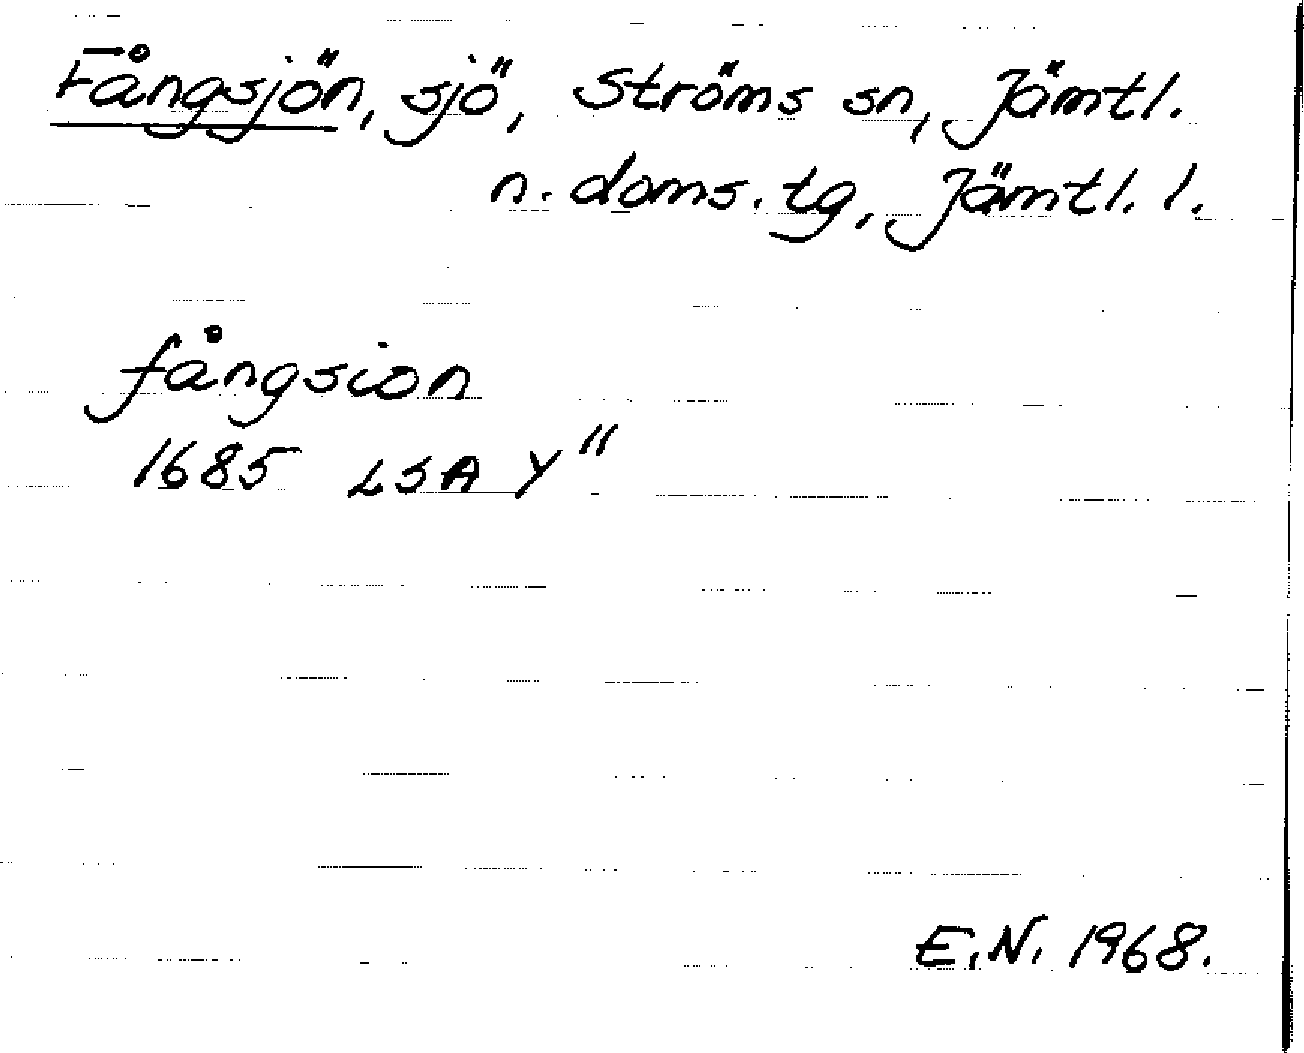 Fångsjön, sjö, Ströms sn, Jämtl.
n. doms. tg, Jämtl. l.
fångsion
1685 LSA Y"
E.N. 1968.